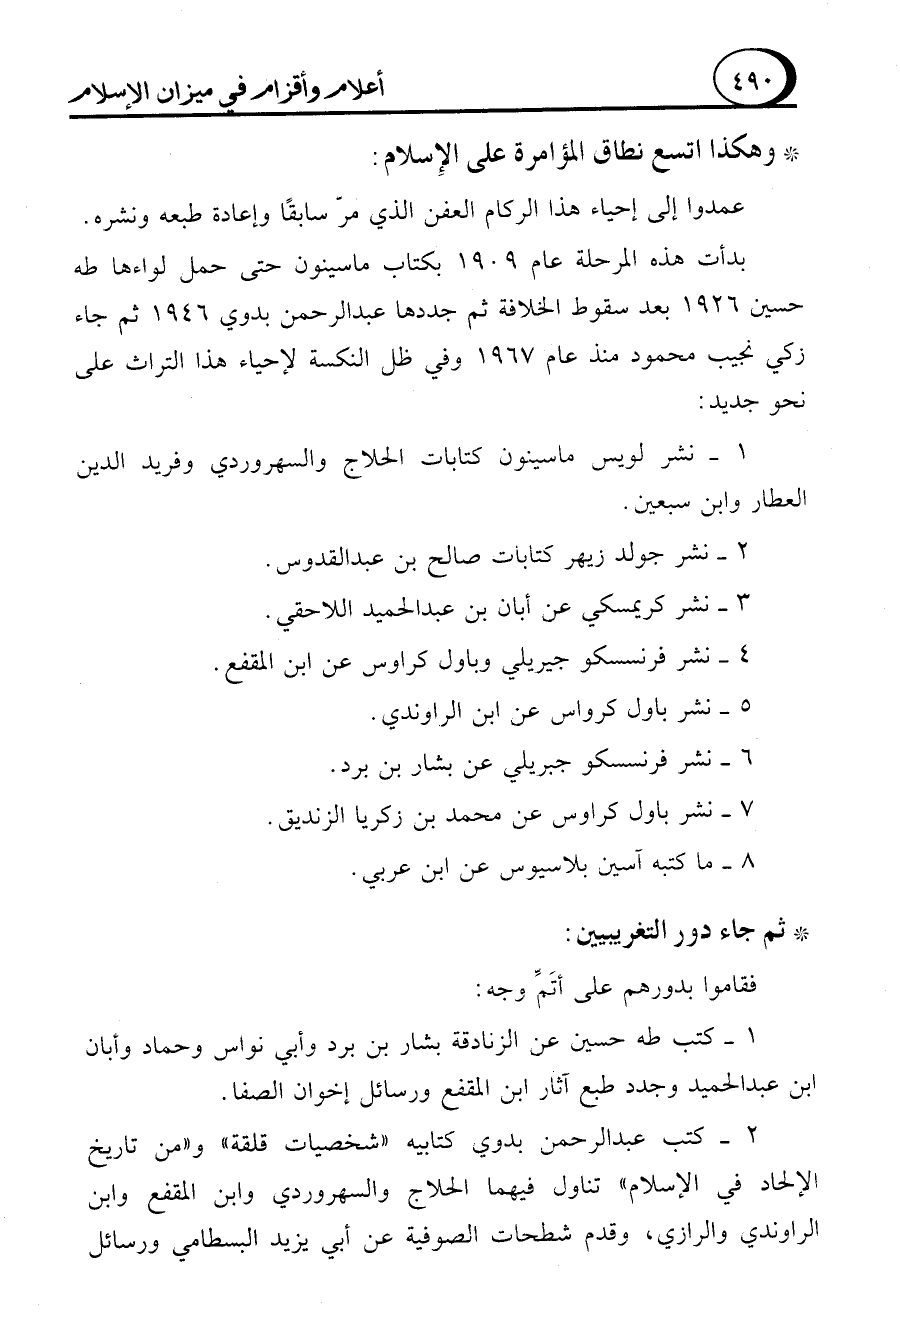 ٤٩٠
أعلام وأقزام في ميزان الإسلام
* وهكذا اتسع نطاق المؤامرة على الإسلام:
عمدوا إلى إحياء هذا الركام العفن الذي مرّ سابقًا وإعادة طبعه ونشره.
بدأت هذه المرحلة عام ١٩٠٩ بكتاب ماسينون حتى حمل لواءها طه
حسين ١٩٢٦ بعد سقوط الخلافة ثم جددها عبدالرحمن بدوي ١٩٤٦ ثم جاء
زكي نجيب محمود منذ عام ١٩٦٧ وفي ظل النكسة لإحياء هذا التراث على
نحو جديد:
١ ـ نشر لويس ماسينون كتابات الحلاج والسهروردي وفريد الدين
العطار وابن سبعين.
٢ ـ نشر جولد زيهر كتابات صالح بن عبدالقدوس.
٣ ـ نشر كريمسكي عن أبان بن عبدالحميد اللاحقي.
٤ ـ نشر فرنسسكو جيريلي وباول كراوس عن ابن المقفع.
٥ ـ نشر باول كرواس عن ابن الراوندي.
٦ ـ نشر فرنسسكو جبريلي عن بشار بن برد.
٧ ـ نشر باول كراوس عن محمد بن زكريا الزنديق.
٨ ـ ما كتبه آسين بلاسيوس عن ابن عربي.
* ثم جاء دور التغريبيين:
فقاموا بدورهم على أتَمِّ وجه:
١ ـ كتب طه حسين عن الزنادقة بشار بن برد وأبي نواس وحماد وأبان
ابن عبدالحميد وجدد طبع آثار ابن المقفع ورسائل إخوان الصفا.
٢ ـ كتب عبدالرحمن بدوي كتابيه «شخصيات قلقة» و«من تاريخ
الإلحاد في الإسلام» تناول فيهما الحلاج والسهروردي وابن المقفع وابن
الراوندي والرازي، وقدم شطحات الصوفية عن أبي يزيد البسطامي ورسائل